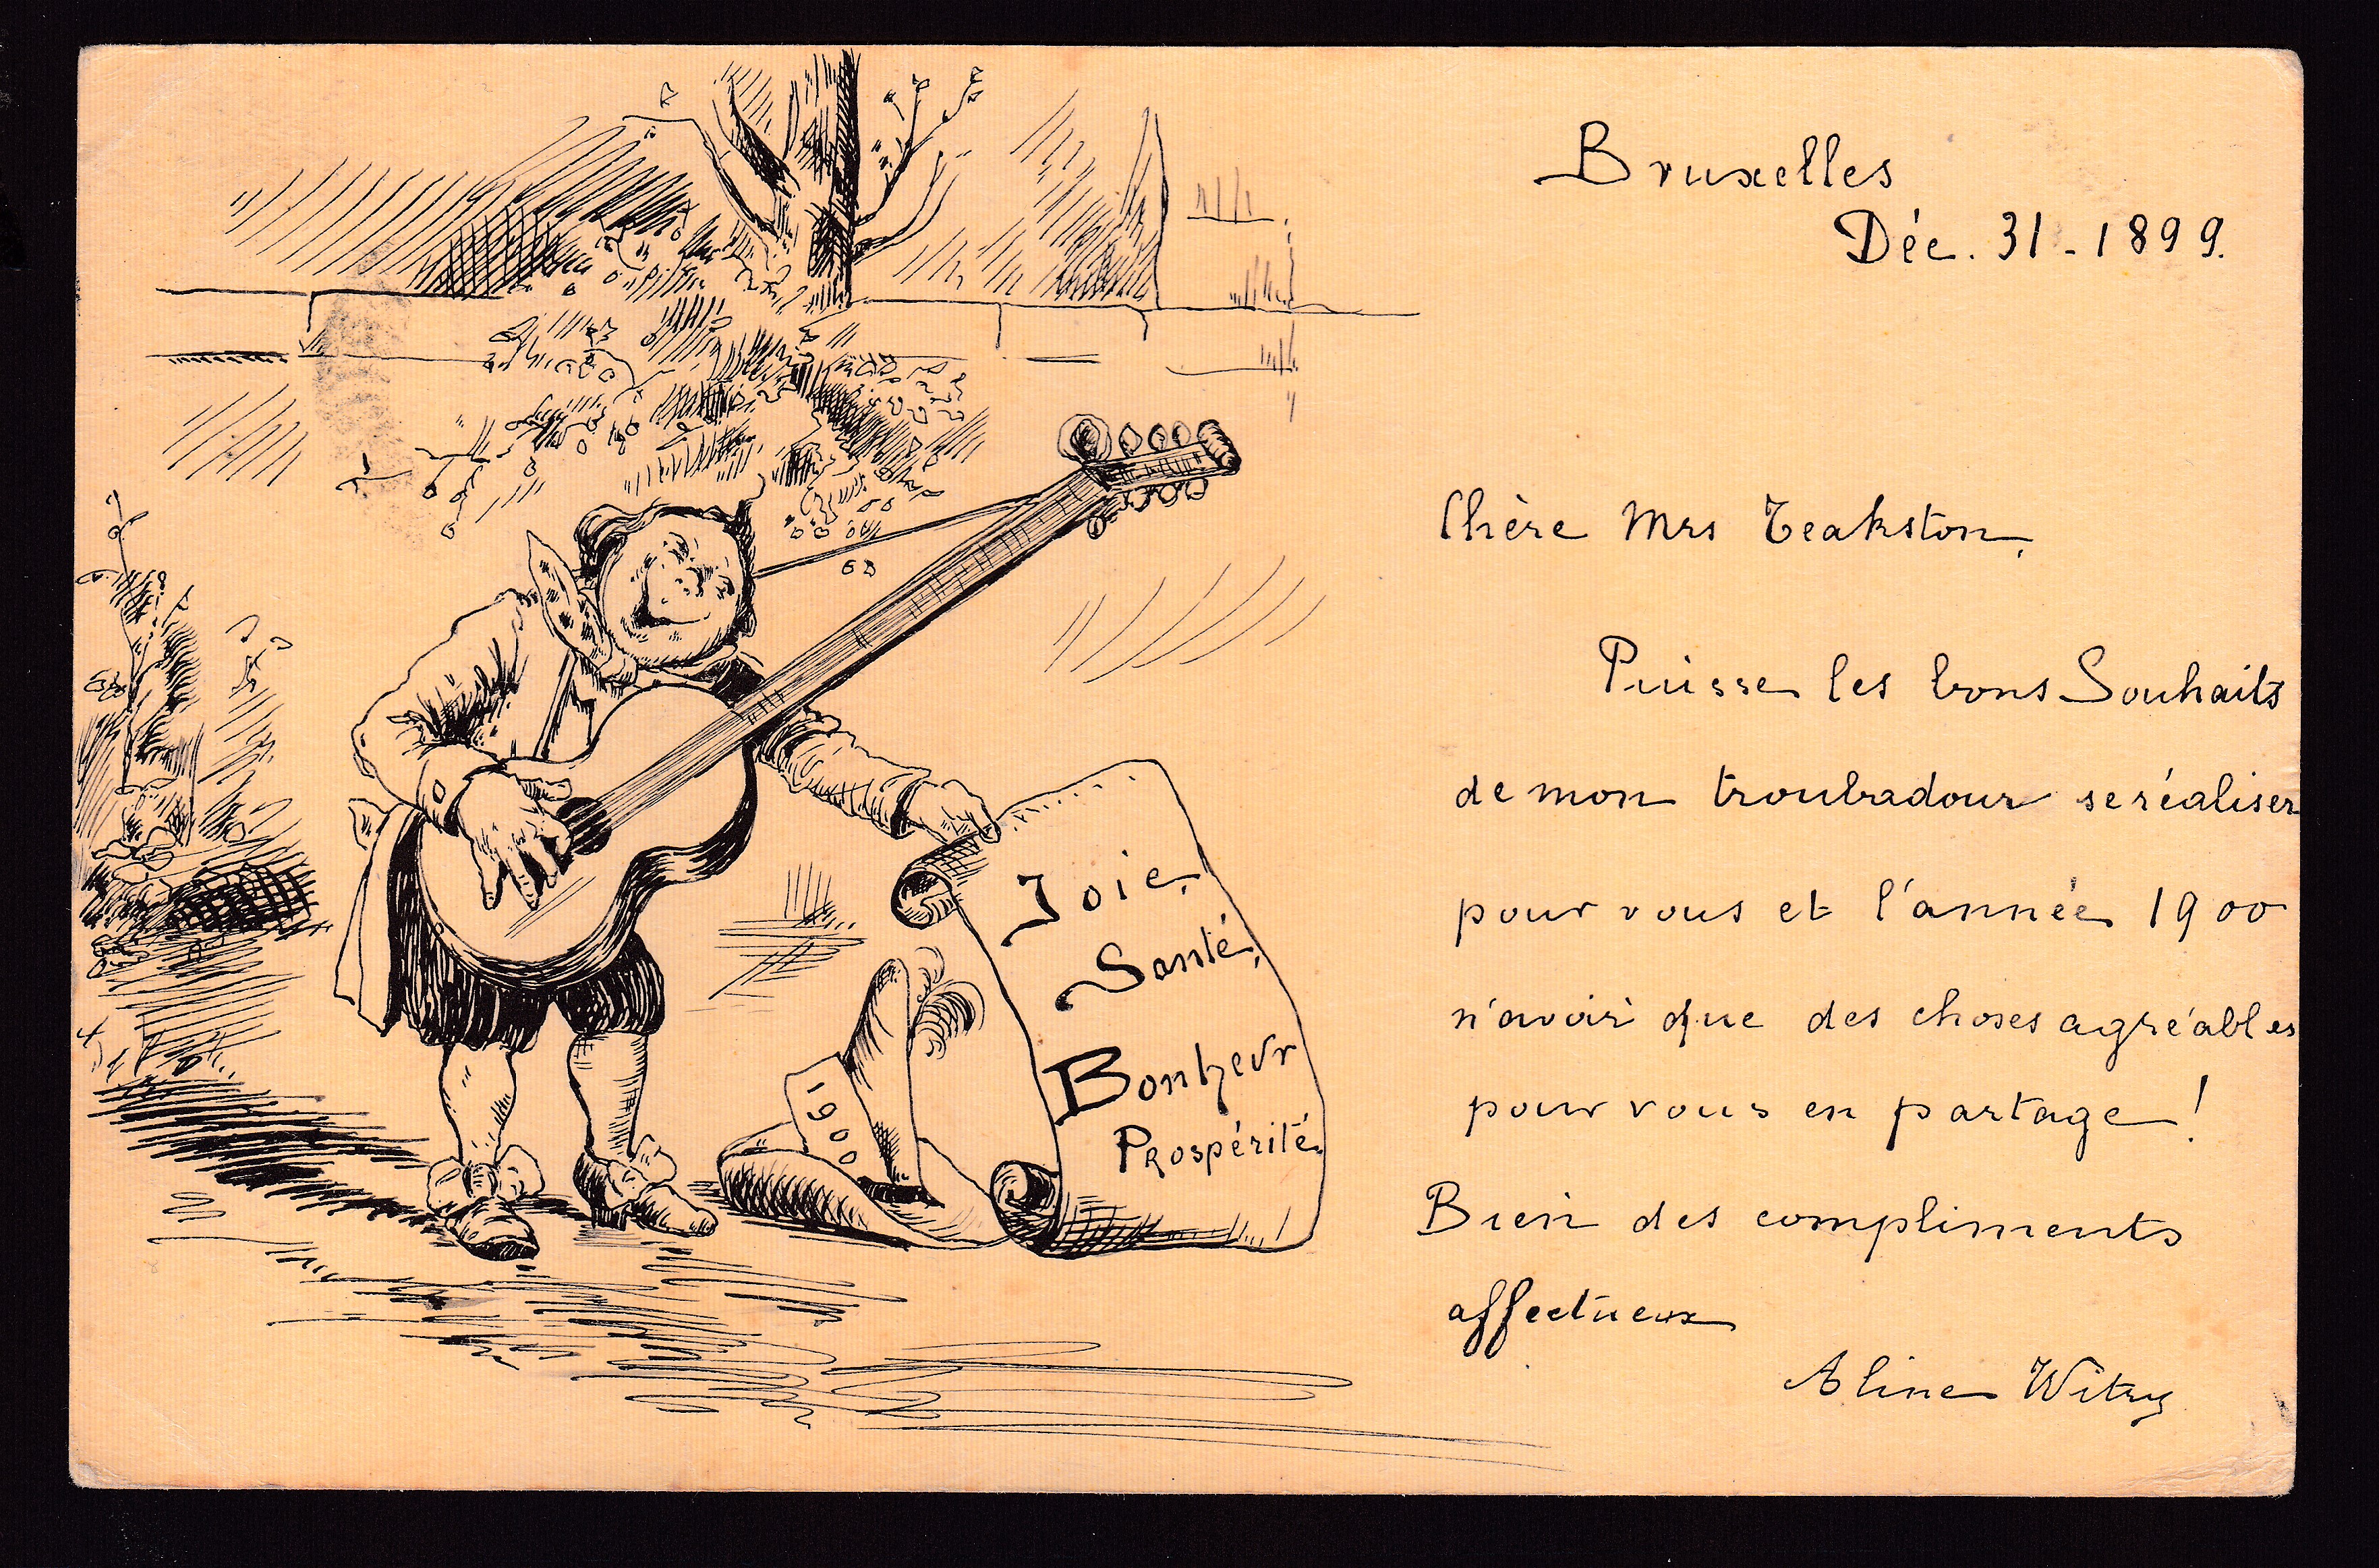 Bruxelles
Déc. 31 - 1899.
Chère Mrs Teakston,
Puisse les bons Souhaits
de mon troubadour se réaliser
pour vous et l'année 1900
n'avoir que des choses agréables
pour vous en partage !
Bien des compliments
affectueux
Aline Witry
Joie,
Santé,
Bonheur
Prospérité.
1900